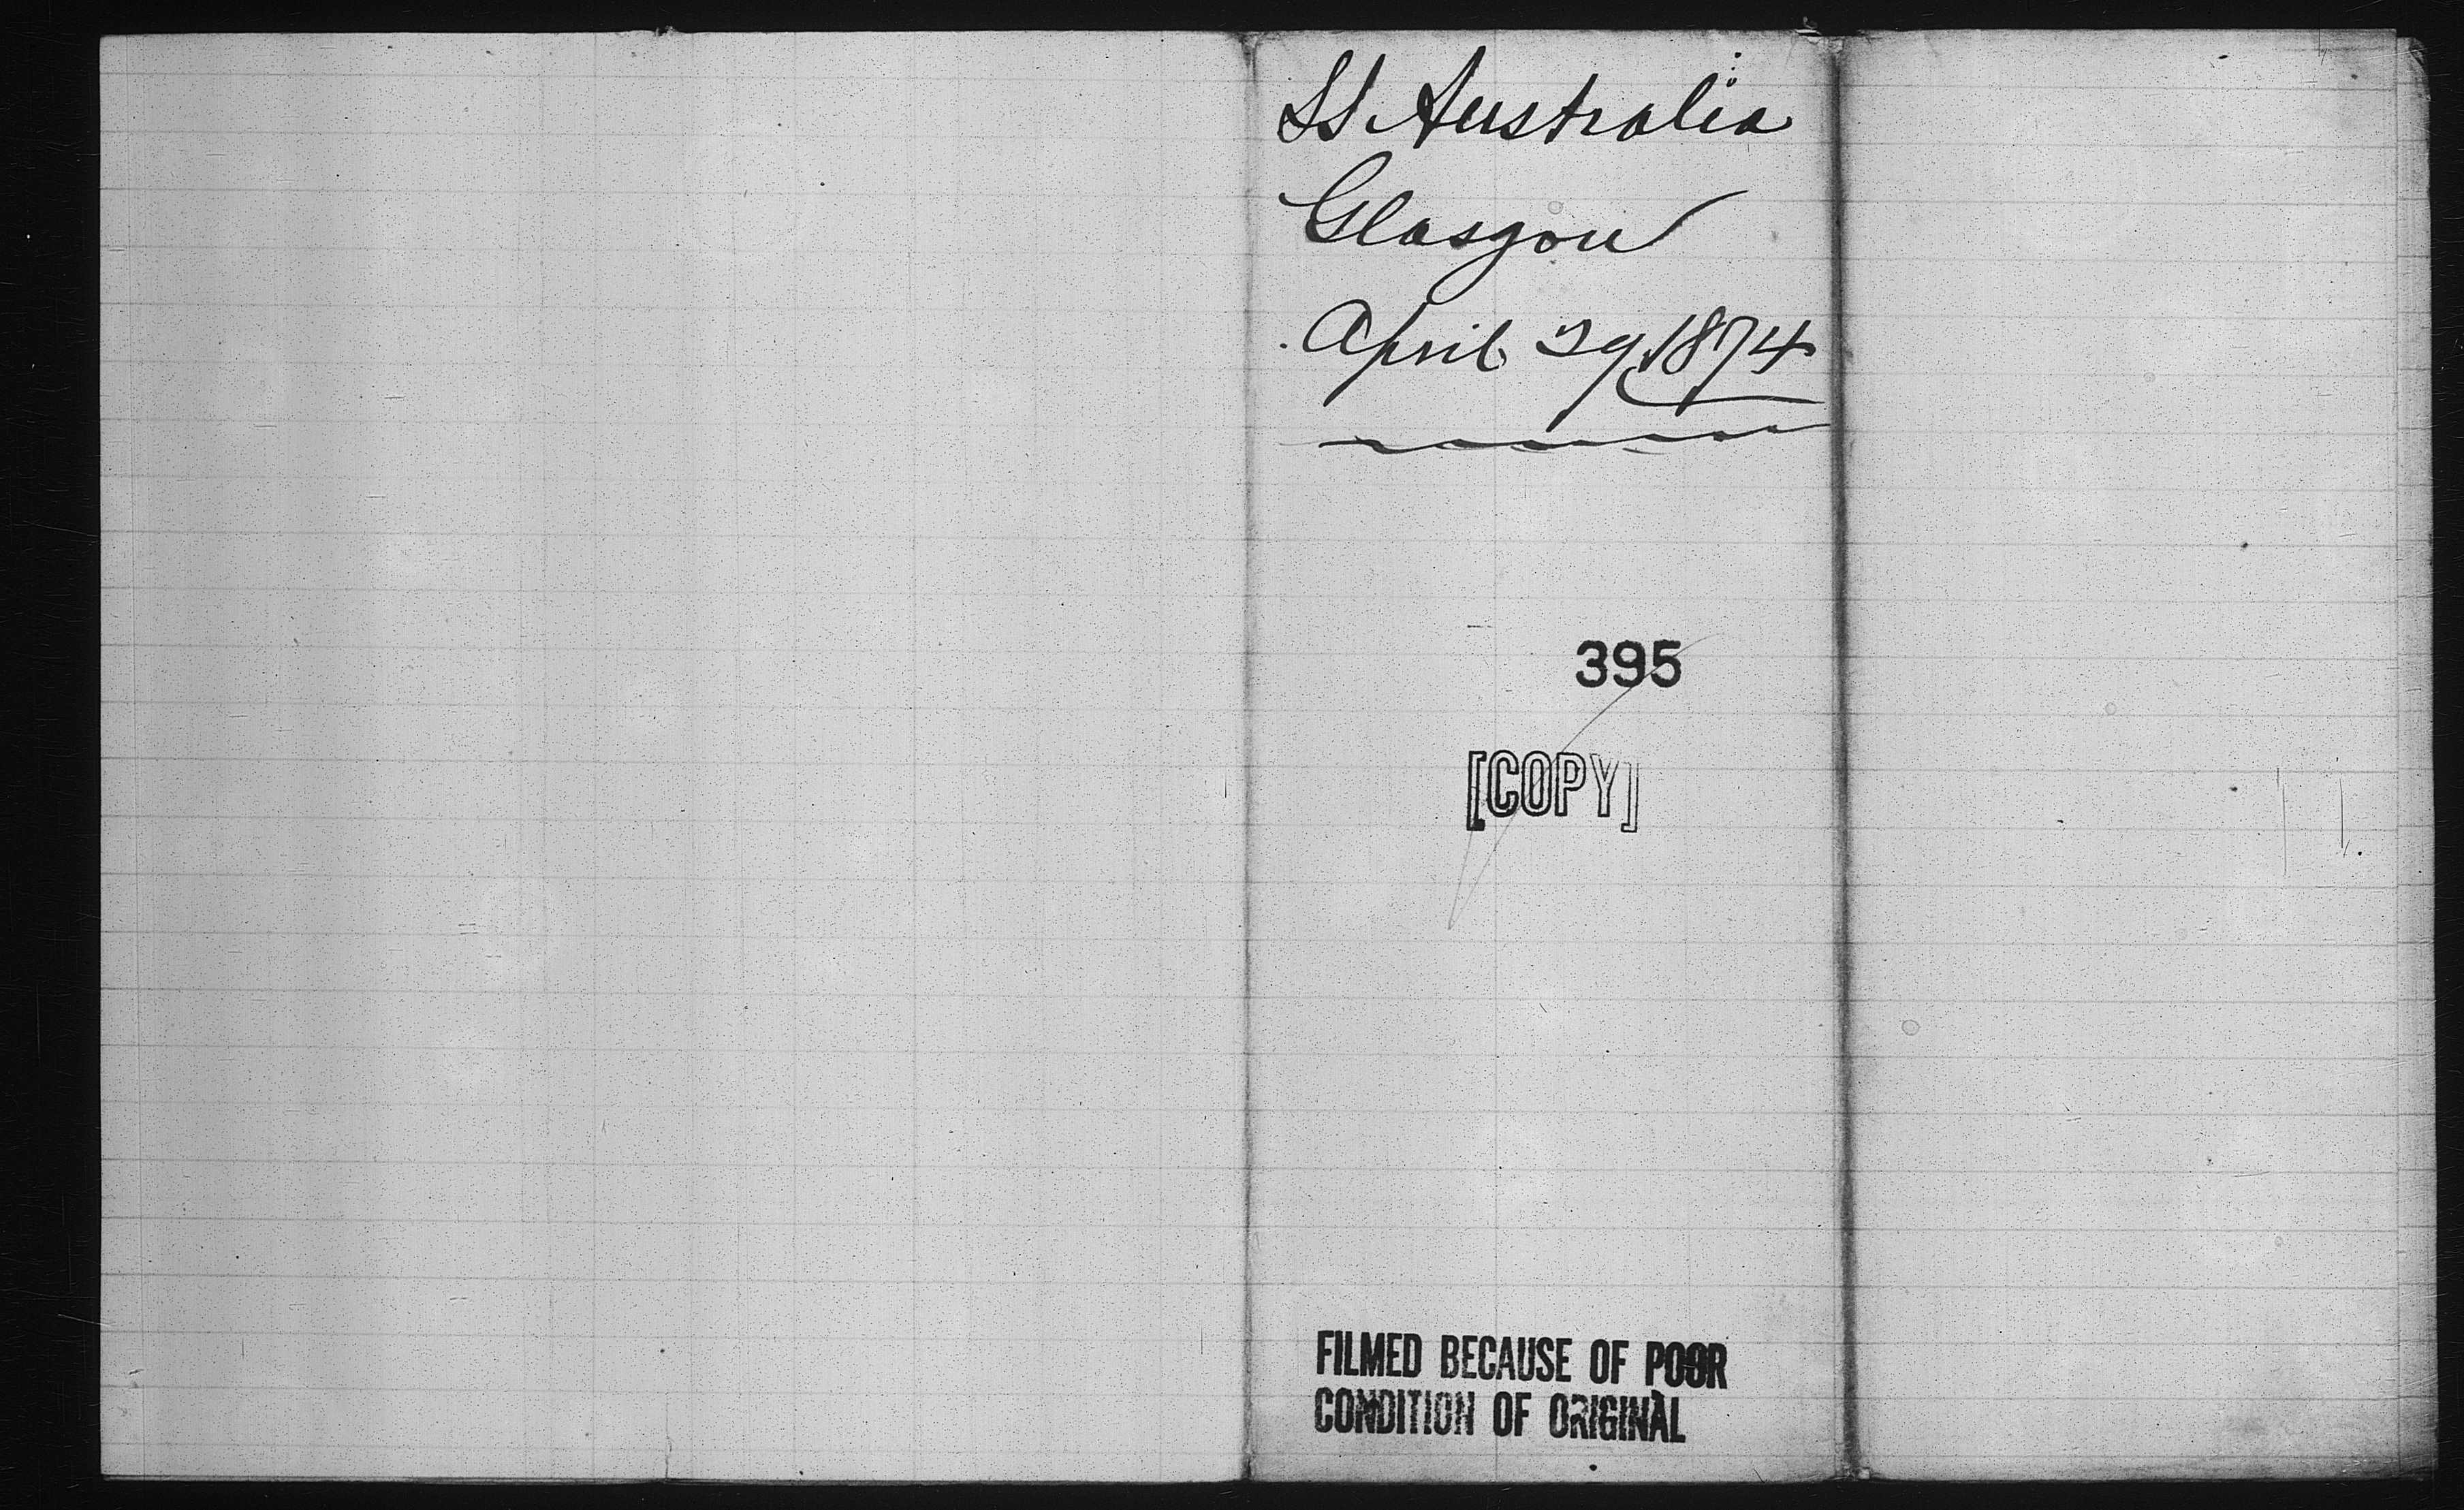 SS Australia
Glasgow
April 29, 1874
395
[COPY]
FILMED BECAUSE OF POOR
CONDITION OF ORIGINAL